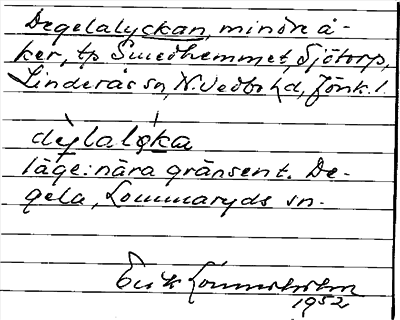 Degelalyckan, mindre å-
ker, tp Smedhemmet, Sjötorp,
Linderås sn, N. Vedbo hd, Jönk. l.
dęlalǫka
läge: nära gränsen t. De-
gela, Lommaryds sn.
Erik Lönnsholm
1952